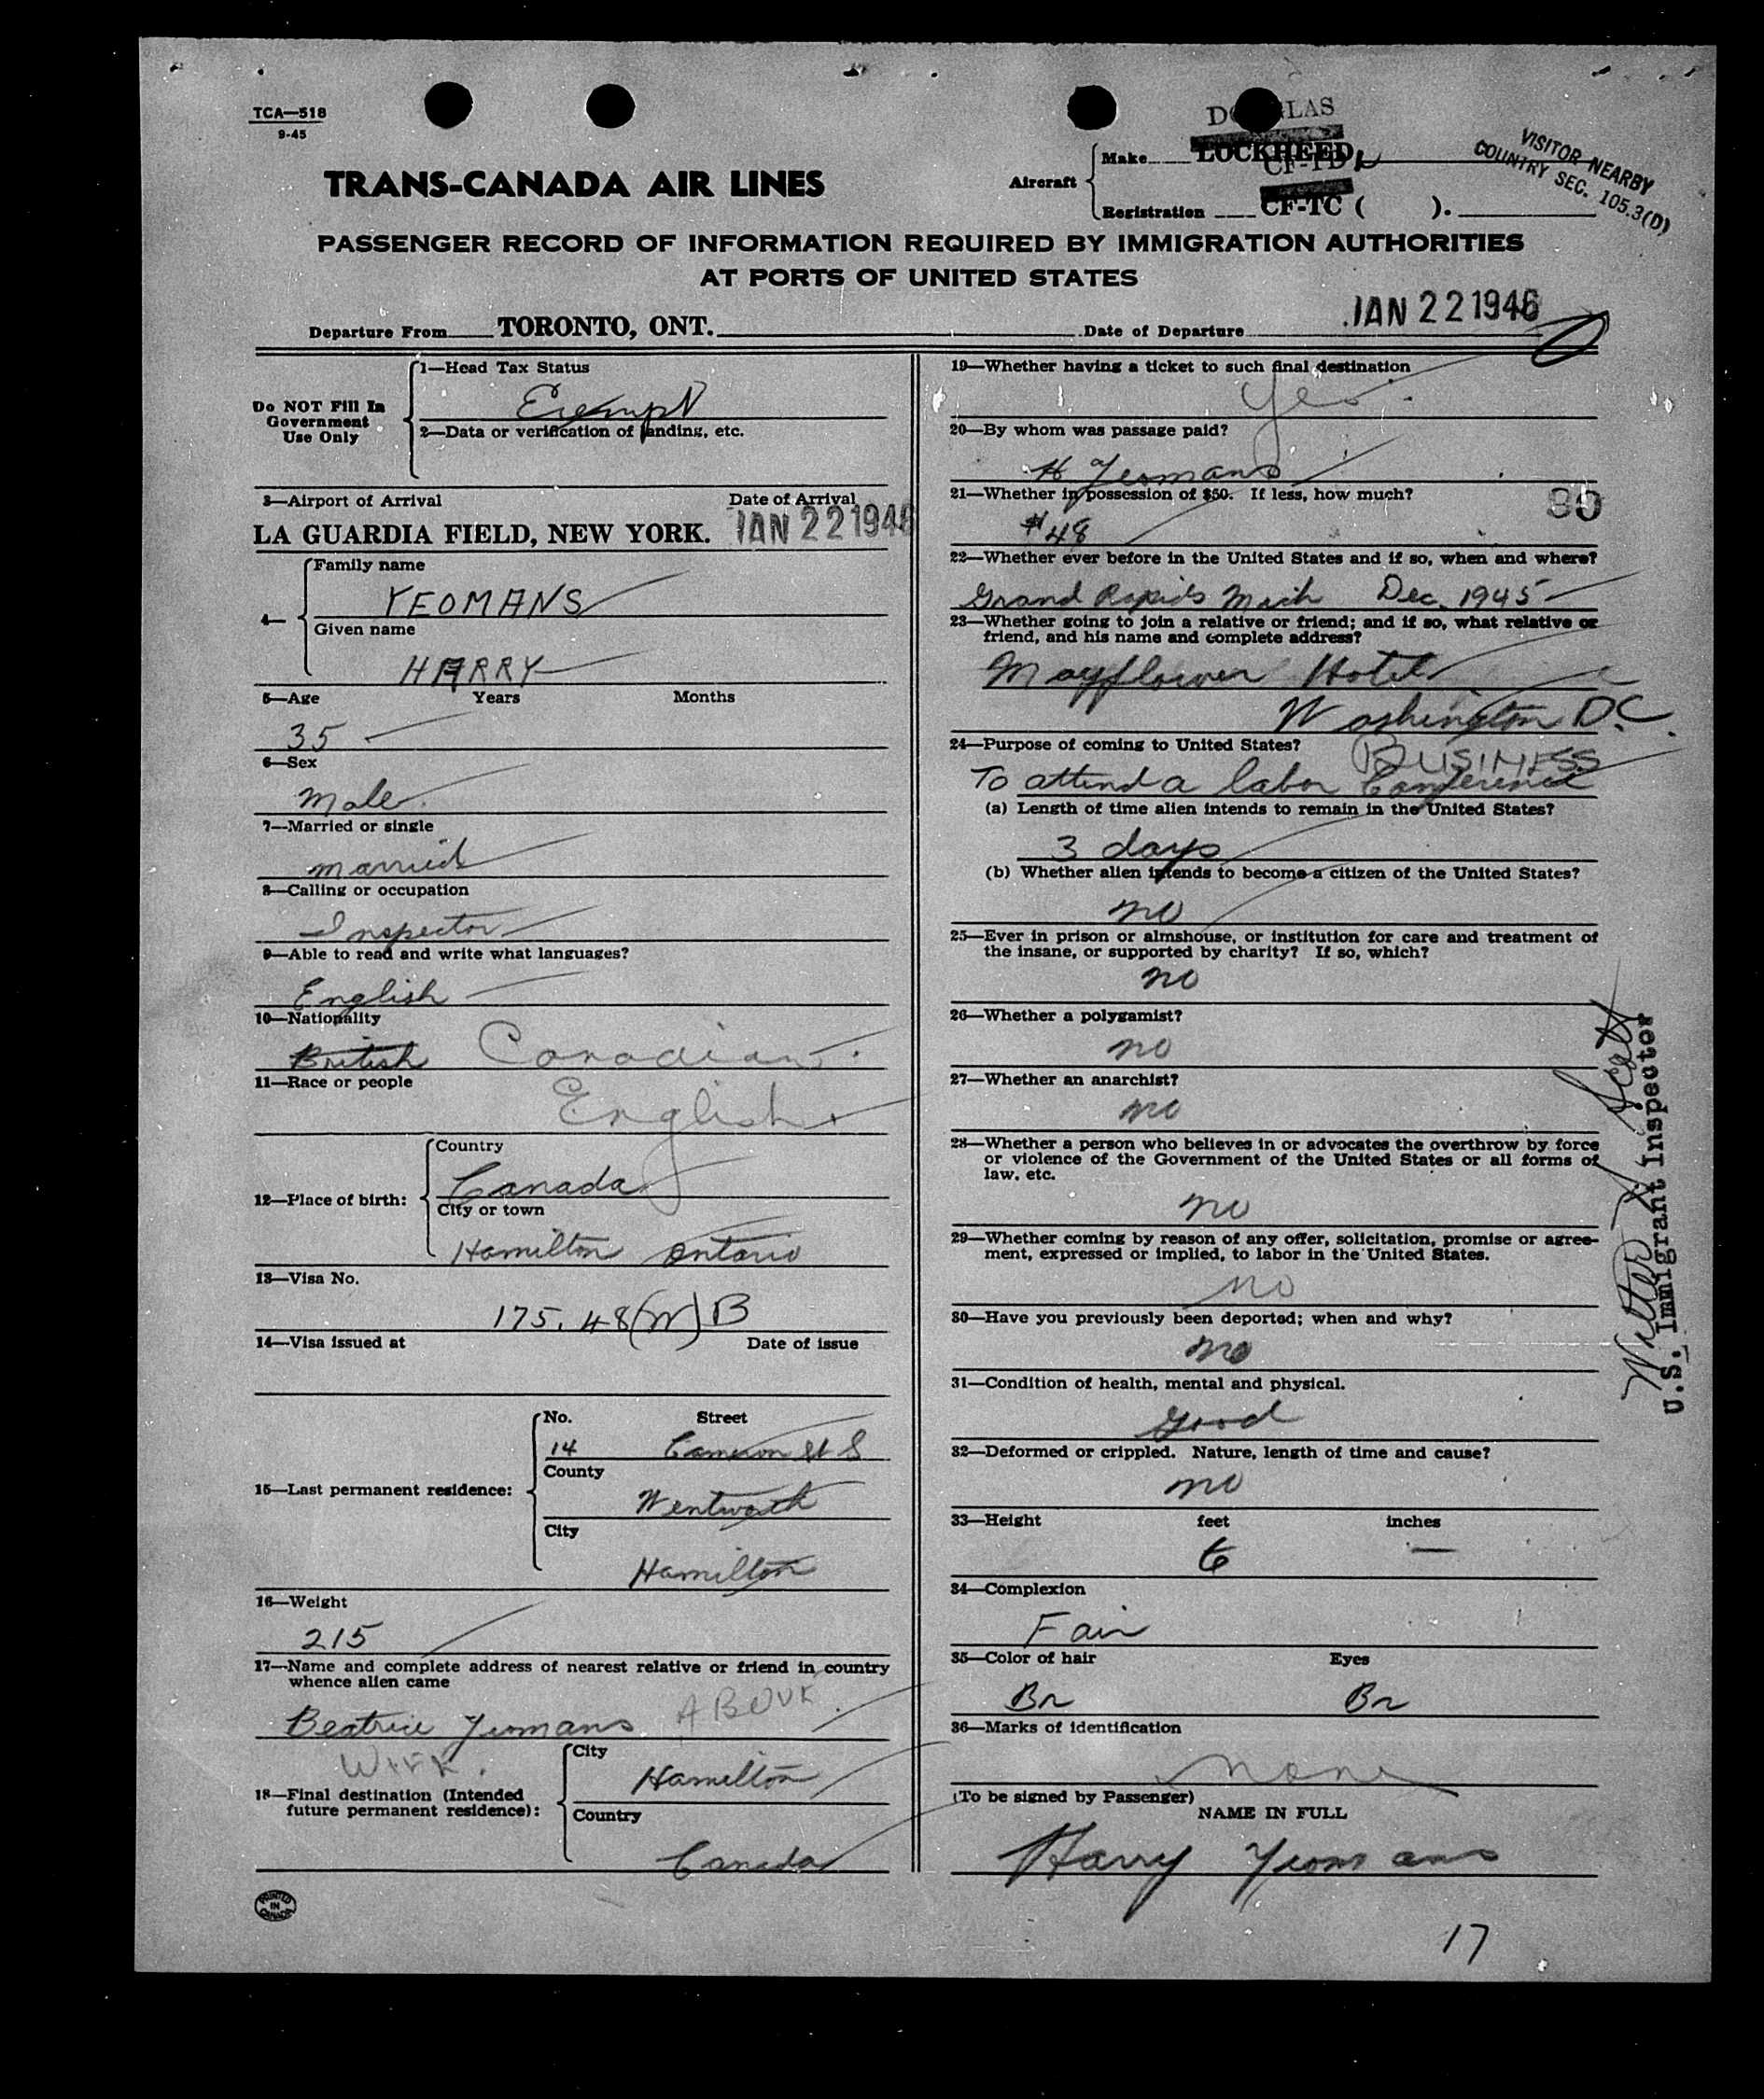 TCA—518
9-45
TRANS-CANADA AIR LINES
DOUGLAS
Aircraft
Make LOCKHEED
CF-TD
Registration CF-TC ( ).
VISITOR NEARBY
COUNTRY SEC. 105.3(D)
PASSENGER RECORD OF INFORMATION REQUIRED BY IMMIGRATION AUTHORITIES
AT PORTS OF UNITED STATES
Departure From TORONTO, ONT. Date of Departure JAN 22 1946
Do NOT Fill In
Government
Use Only
1—Head Tax Status
Exempt
2—Data or verification of landing, etc.
3—Airport of Arrival Date of Arrival
LA GUARDIA FIELD, NEW YORK. JAN 22 1946
4—
Family name
YEOMANS
Given name
HARRY
5—Age Years Months
35
6—Sex
Male
7—Married or single
married
8—Calling or occupation
Inspector
9—Able to read and write what languages?
English
10—Nationality
British Canadian
11—Race or people
English
12—Place of birth:
Country
Canada
City or town
Hamilton Ontario
13—Visa No.
175.48(W)B
14—Visa issued at Date of issue
15—Last permanent residence:
No. Street
14 Cameron St S
County
Wentworth
City
Hamilton
16—Weight
215
17—Name and complete address of nearest relative or friend in country
whence alien came
Beatrice Yeomans ABOVE
WIFE.
18—Final destination (Intended
future permanent residence):
City
Hamilton
Country
Canada
PRINTED
IN
CANADA
19—Whether having a ticket to such final destination
Yes.
20—By whom was passage paid?
H Yeomans
21—Whether in possession of $50. If less, how much?
$48
22—Whether ever before in the United States and if so, when and where?
Grand Rapids Mich Dec. 1945
23—Whether going to join a relative or friend; and if so, what relative or
friend, and his name and complete address?
Mayflower Hotel
Washington D.C.
24—Purpose of coming to United States?
BUSINESS
To attend a labor Conference
(a) Length of time alien intends to remain in the United States?
3 days
(b) Whether alien intends to become a citizen of the United States?
no
25—Ever in prison or almshouse, or institution for care and treatment of
the insane, or supported by charity? If so, which?
no
26—Whether a polygamist?
no
27—Whether an anarchist?
no
28—Whether a person who believes in or advocates the overthrow by force
or violence of the Government of the United States or all forms of
law, etc.
no
29—Whether coming by reason of any offer, solicitation, promise or agree-
ment, expressed or implied, to labor in the United States.
no
30—Have you previously been deported; when and why?
no
31—Condition of health, mental and physical.
Good
32—Deformed or crippled. Nature, length of time and cause?
no
33—Height feet inches
6 —
34—Complexion
Fair
35—Color of hair Eyes
Br Br
36—Marks of identification
none
(To be signed by Passenger)
NAME IN FULL
Harry Yeomans
17
Scott
U.S. Immigrant Inspector